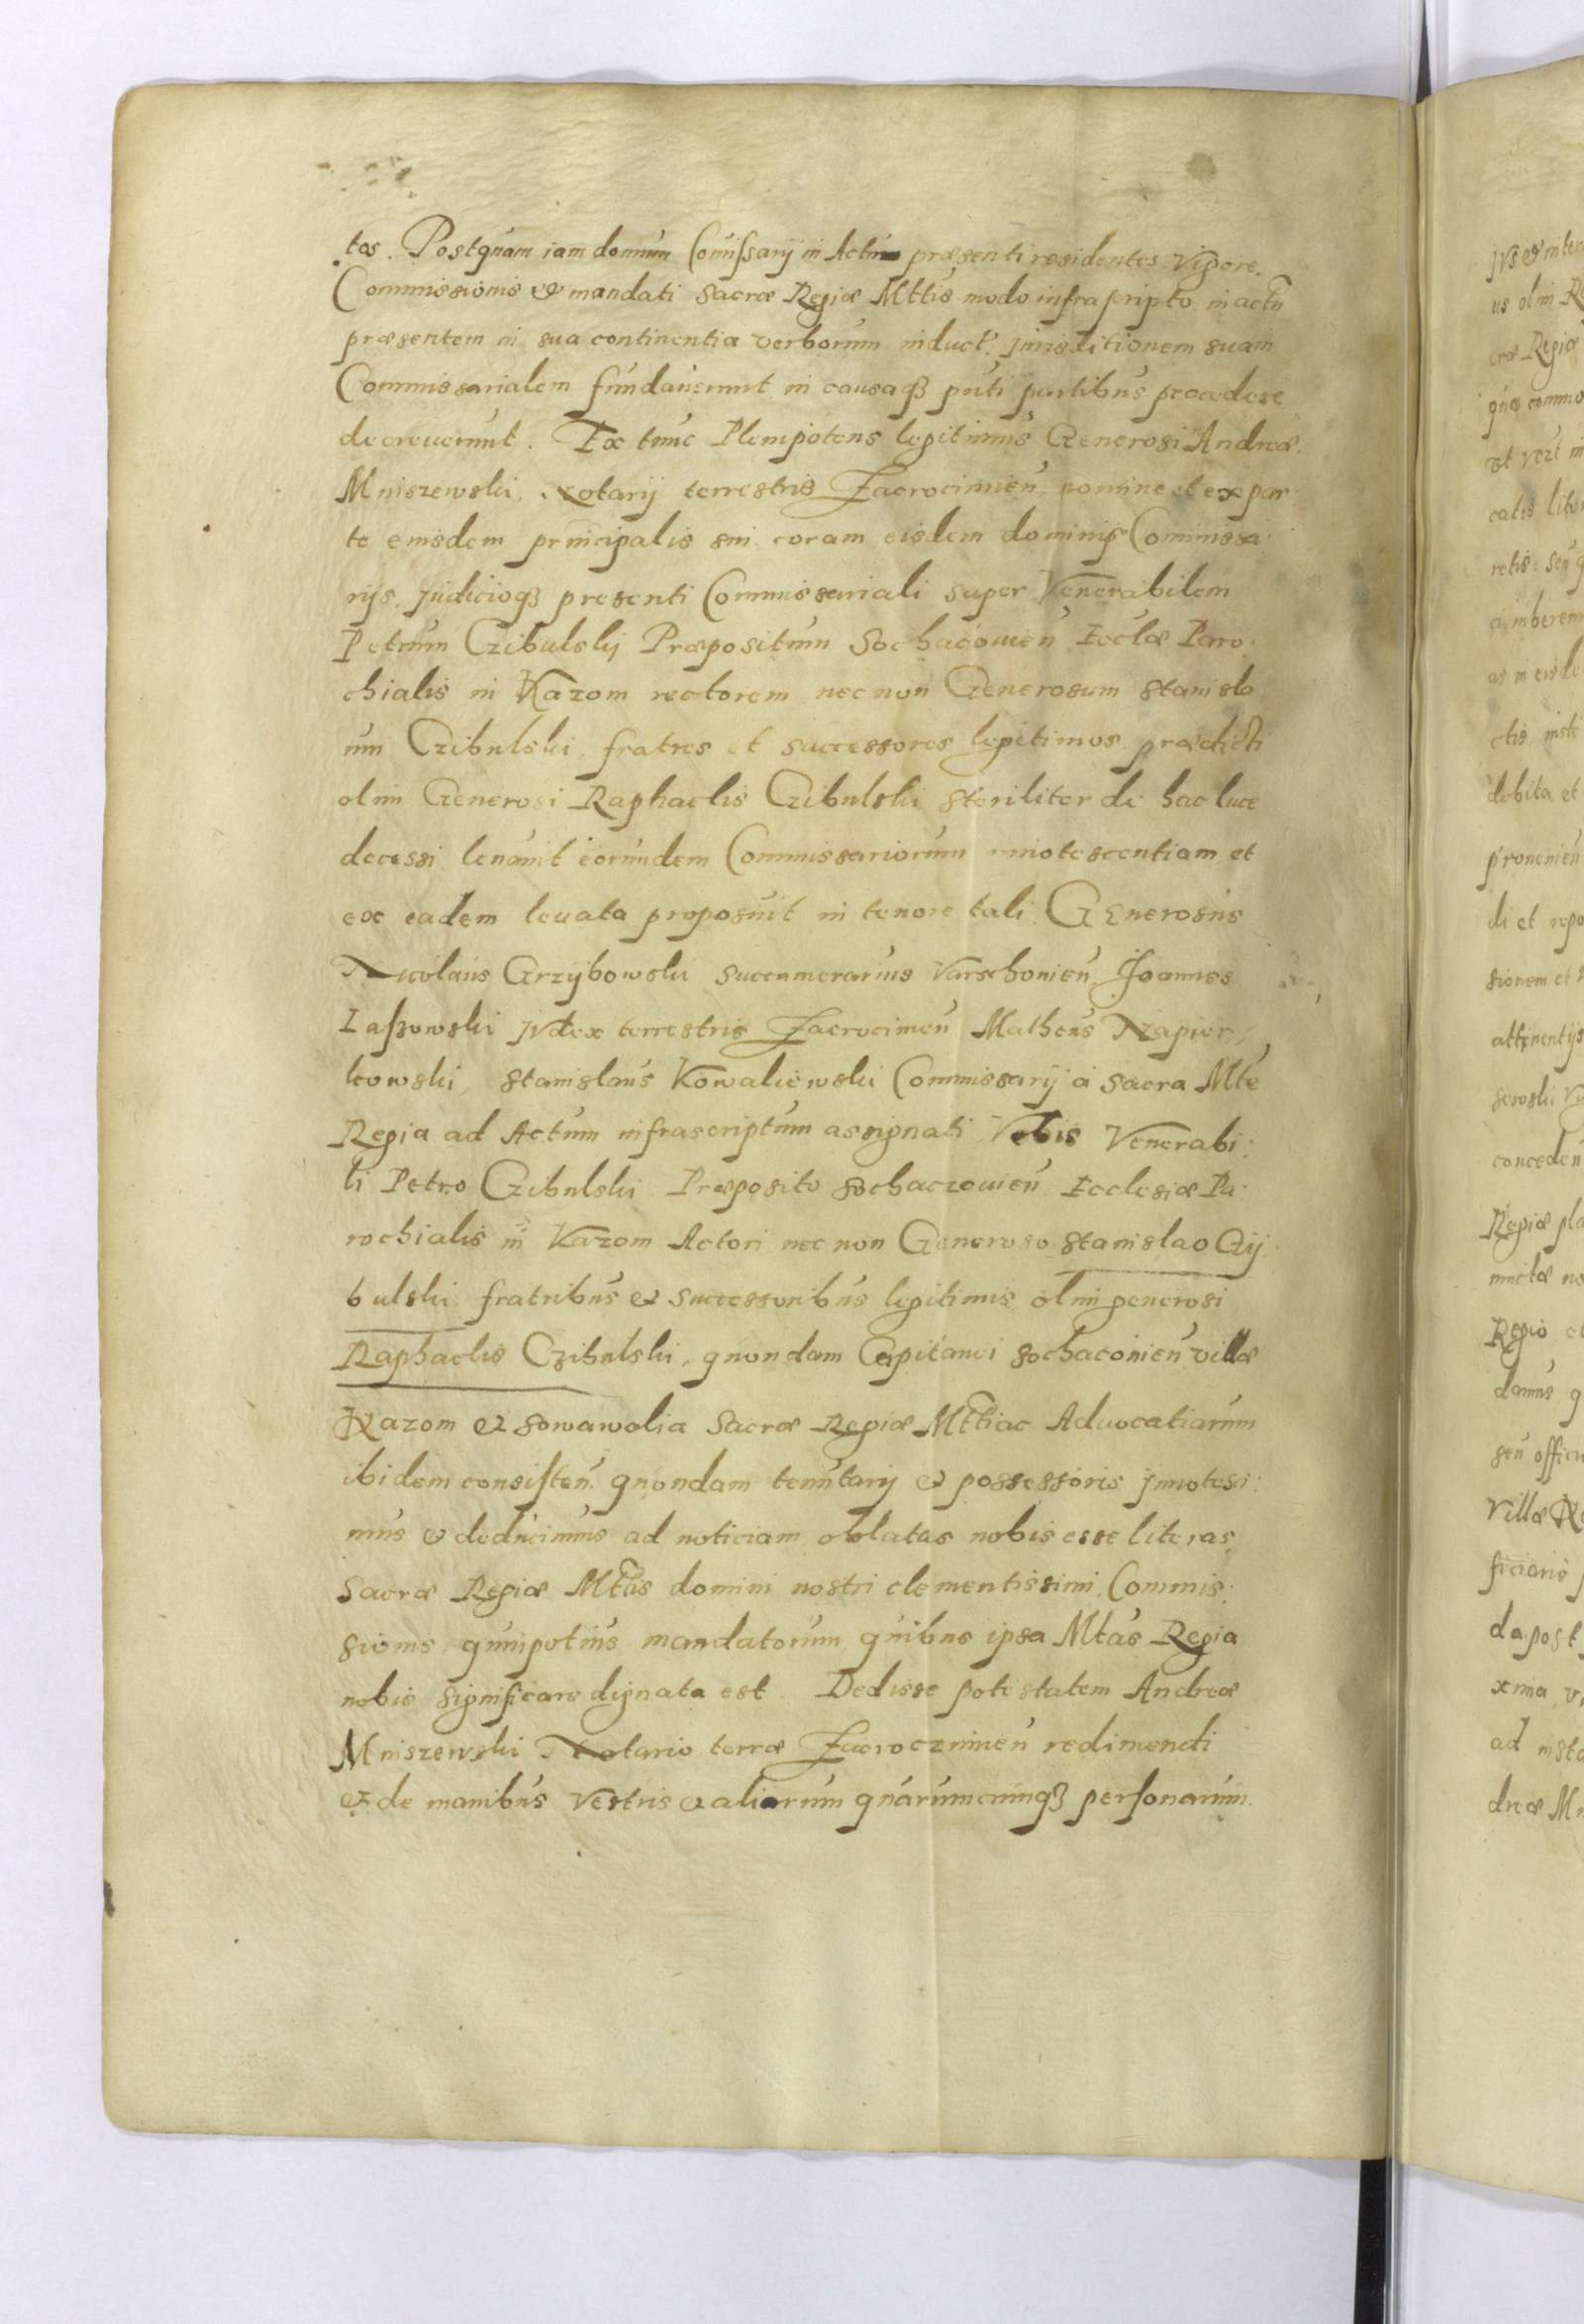 tas. Postquam iam domini Comissarij in Actu præsenti residentes. Vigore.
Commissionis & mandati Sacræ Regiæ Mttis modo infrascripto in actu
præsentem in sua continentia verborum induct. jurisditionem suam
Commissarialem fundaverunt in causaqз pnti partibus procedere
decreverunt. Ex tunc Plenipotens legitimus Generosi Andreæ.
Mniszewski. Notarij terrestris Zacrocimien nomine et ex par
te eiusdem principalis sui coram eisdem dominis Commissa
rijs. judicioqз presenti Commissariali super Venerabilem
Petrum Czibulskj Præpositum Sochacouien Eccłæ Paro
chialis in Kazom rectorem nec non Generosum Stanisla
um Czibulski. fratres et successores legitimos prædicti
olim Generosi Raphaelis Czibulski steriliter de hac luce
decessi leuauit eorundem Commissariorum innotescentiam et
ex eadem leuata proposuit in tenore tali. GEnerosus
Nicolaus Grzybowski Succamerarius Varschouien Joannes
Laszowski jvdex terrestris Zacrocimen Matheus Napier,
kowski, Stanislaus Kowaliewski Commissarij a Sacra Mte
Regia ad Actum infrascriptum assignati Vobis Venerabi:
li Petro Czibulski Præposito Sochaczouien Ecclesiæ Pa
rochialis in Kazom Actori nec non Generoso Stanislao Czij
bulski fratribus & successoribus legitimis olim generosi
Raphaelis Czibulski, quondam Capitanei Sochacouien villæ
Kazom & Sowawolia Sacræ Regiæ Mttiac Aduocatiarum
ibidem consisten. quondam tenutarij & possessoris jnnotesci:
mus & deducimus ad noticiam oblatas nobis esse literas,
Sacræ Regiæ Mttis domini nostri clementissimi Commis:
sionis quinpotius mandatorum quibus ipsa Mtas Regia
nobis significare dignata est. Dedisse potestatem Andreæ
Mniszewski Notario terræ Zacroczimien redimendi
& de manibus Vestris & aliarum quarumcumqз personarum